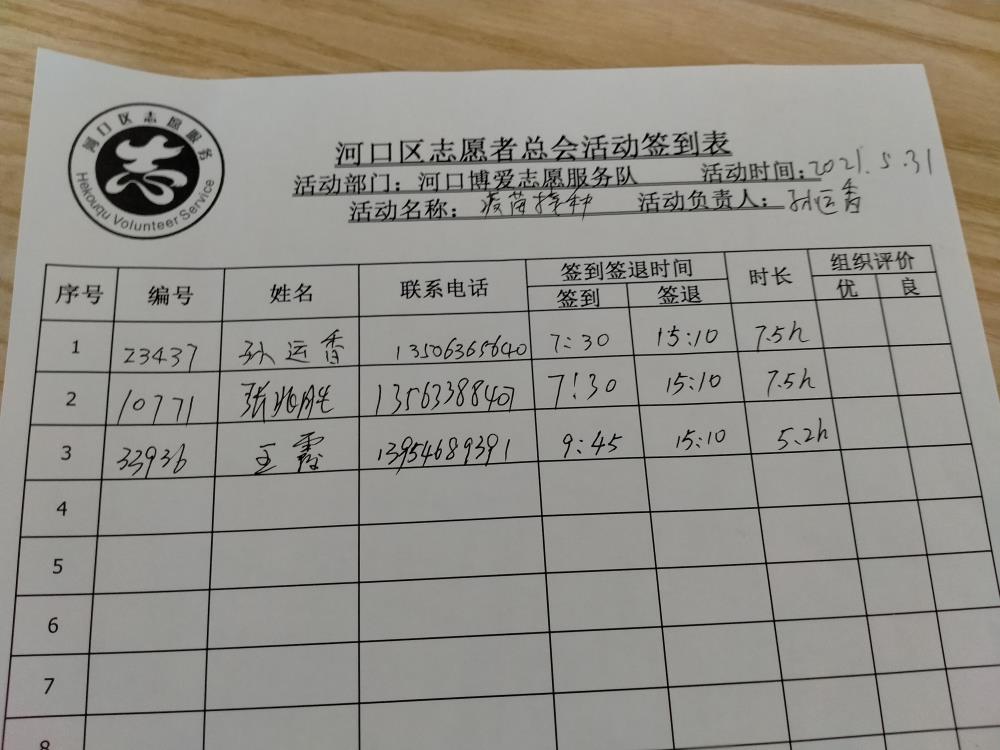 河口区志愿服务
志
Hekouqu Volunteer Service
河口区志愿者总会活动签到表
活动部门：河口博爱志愿服务队 活动时间：2021.5.31
活动名称：疫苗接种 活动负责人：孙运香
序号 编号 姓名 联系电话 签到签退时间 时长 组织评价
签到 签退 优 良
1 23437 孙运香 13506365640 7:30 15:10 7.5h
2 10771 张兆胜 13563388407 7:30 15:10 7.5h
3 33936 王霞 13954689391 9:45 15:10 5.2h
4
5
6
7
8